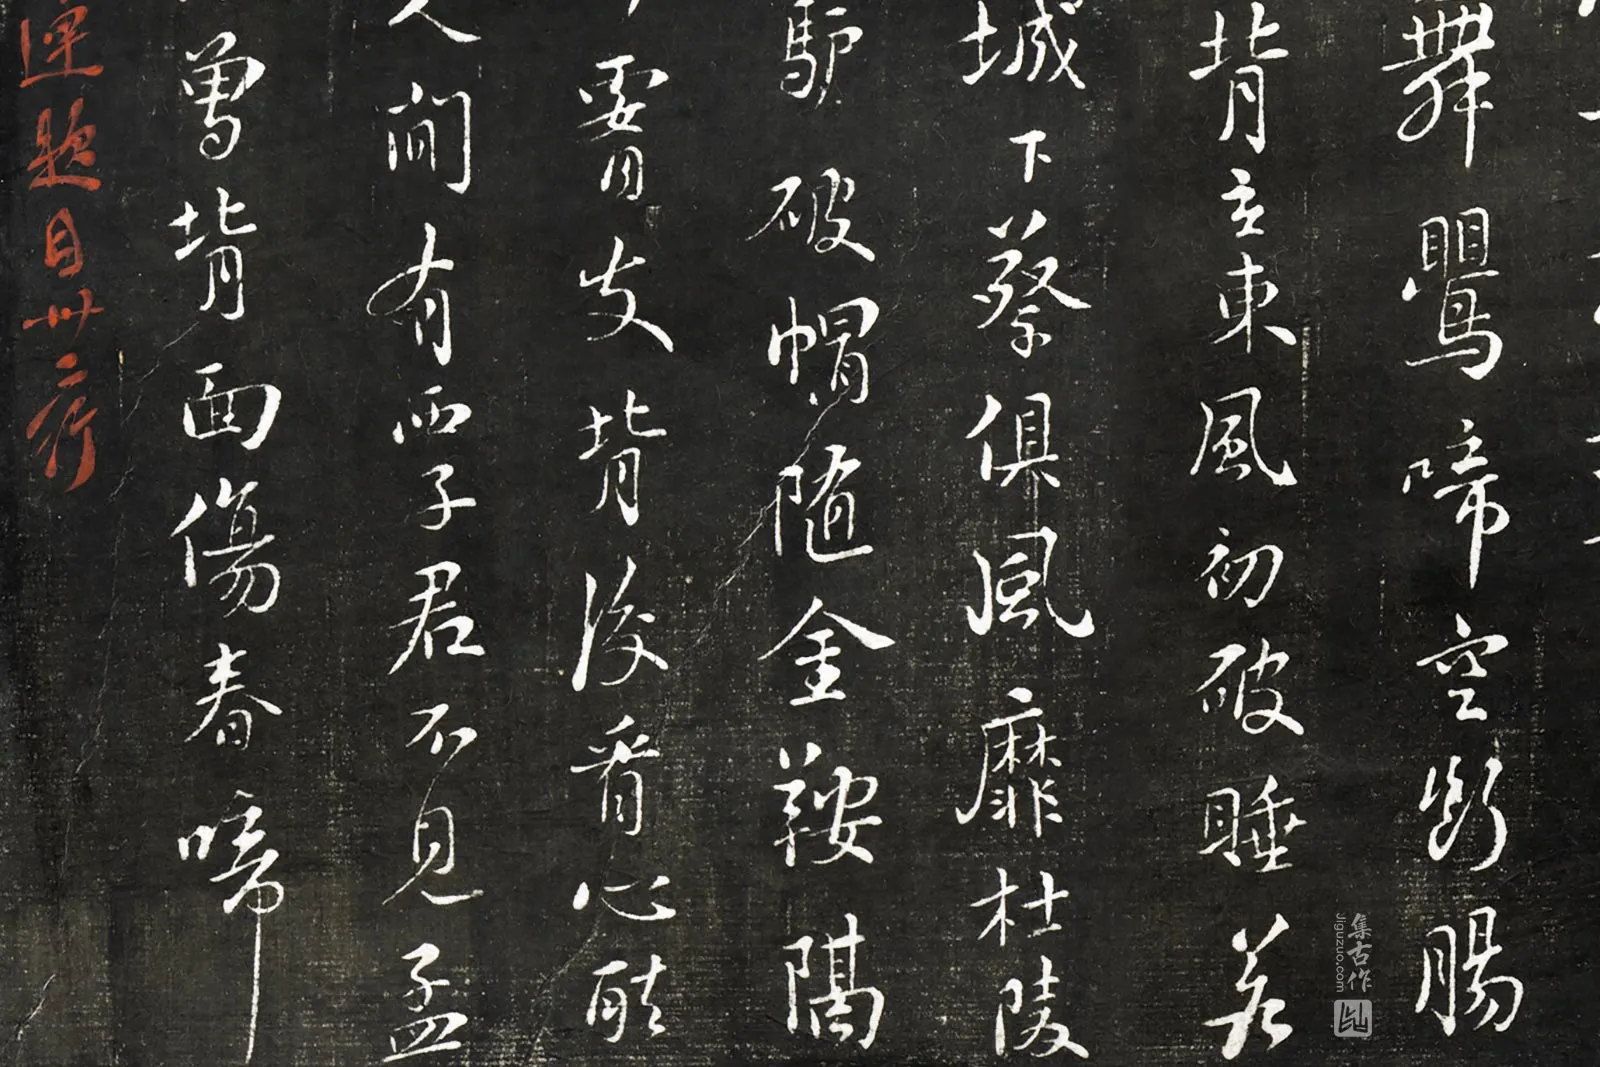 舞鸎啼空斷腸
背立東風初破睡若
城下蔡俱風靡杜陵
驢破帽隨金鞍隔
腰支背後看心醉
人間有西子君不見孟
曾背面傷春啼
連題目卅二行
集古作
jiguzuo.com